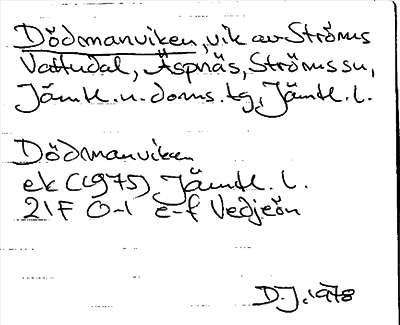 Dödmanviken, vik av Ströms
Vattudal, Äspnäs, Ströms sn,
Jämtl. n. doms. tg, Jämtl. l.
Dödmanviken
ek (1975) Jämtl. l.
21F 0-1 e-f Vedjeön
D.J. 1978